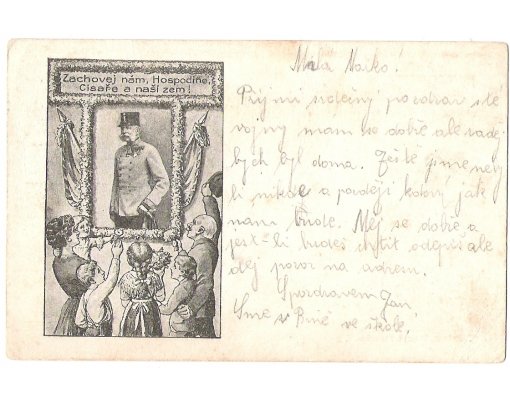 Zachovej nám, Hospodine,
Císaře a naší zem!
Milá Marko!
Přijmi srdečný pozdrav s té
vojny mám se dobře ale raději
bych byl doma. Ještě jsme neby
li nikde a později kdoví jak
nami bude. Měj se dobře a
jest-li budeš chtít odepiš ale
dej pozor na adresu.
Spozdravem Jan
Sme v Brně ve škole.